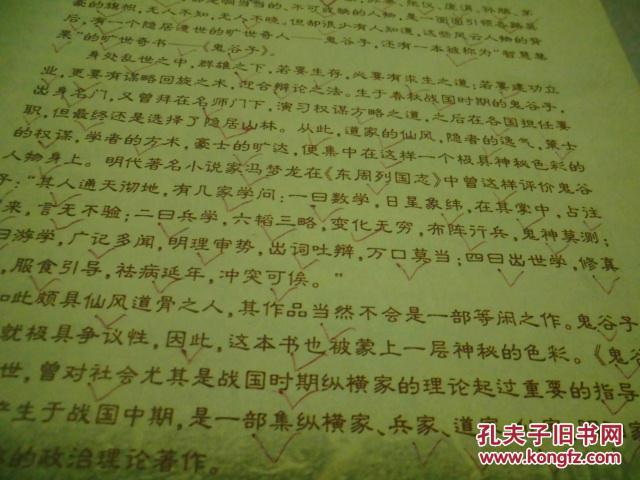 豪的旗帜,无人不知,无人不晓。但却很少有人知道,这些风云人物的背
后,有一个隐居遗世的旷世奇人——鬼谷子,还有一本被称为“智慧慧
果”的旷世奇书——《鬼谷子》。
身处乱世之中,群雄之下,若要生存,必要有求生之道;若要建功立
业,更要有谋略回旋之术,迎合辩论之法。生于春秋战国时期的鬼谷子,
出身名门,又曾拜在名师门下,演习权谋方略之道,之后在各国担任要
职,但最终还是选择了隐居山林。从此,道家的仙风,隐者的逸气,策士
的权谋,学者的方术,豪士的旷达,便集中在这样一个极具神秘色彩的
人物身上。明代著名小说家冯梦龙在《东周列国志》中曾这样评价鬼谷
子:“其人通天彻地,有几家学问:一曰数学,日星象纬,在其掌中,占往
来,言无不验;二曰兵学,六韬三略,变化无穷,布阵行兵,鬼神莫测;
曰游学,广记多闻,明理审势,出词吐辩,万口莫当;四曰出世学,修真
,服食引导,祛病延年,冲突可俟。”
如此颇具仙风道骨之人,其作品当然不会是一部等闲之作。鬼谷子
就极具争议性,因此,这本书也被蒙上一层神秘的色彩。《鬼
世,曾对社会尤其是战国时期纵横家的理论起过重要的指导
产生于战国中期,是一部集纵横家、兵家、道家、
的政治理论著作。
孔夫子旧书网
www.kongfz.com